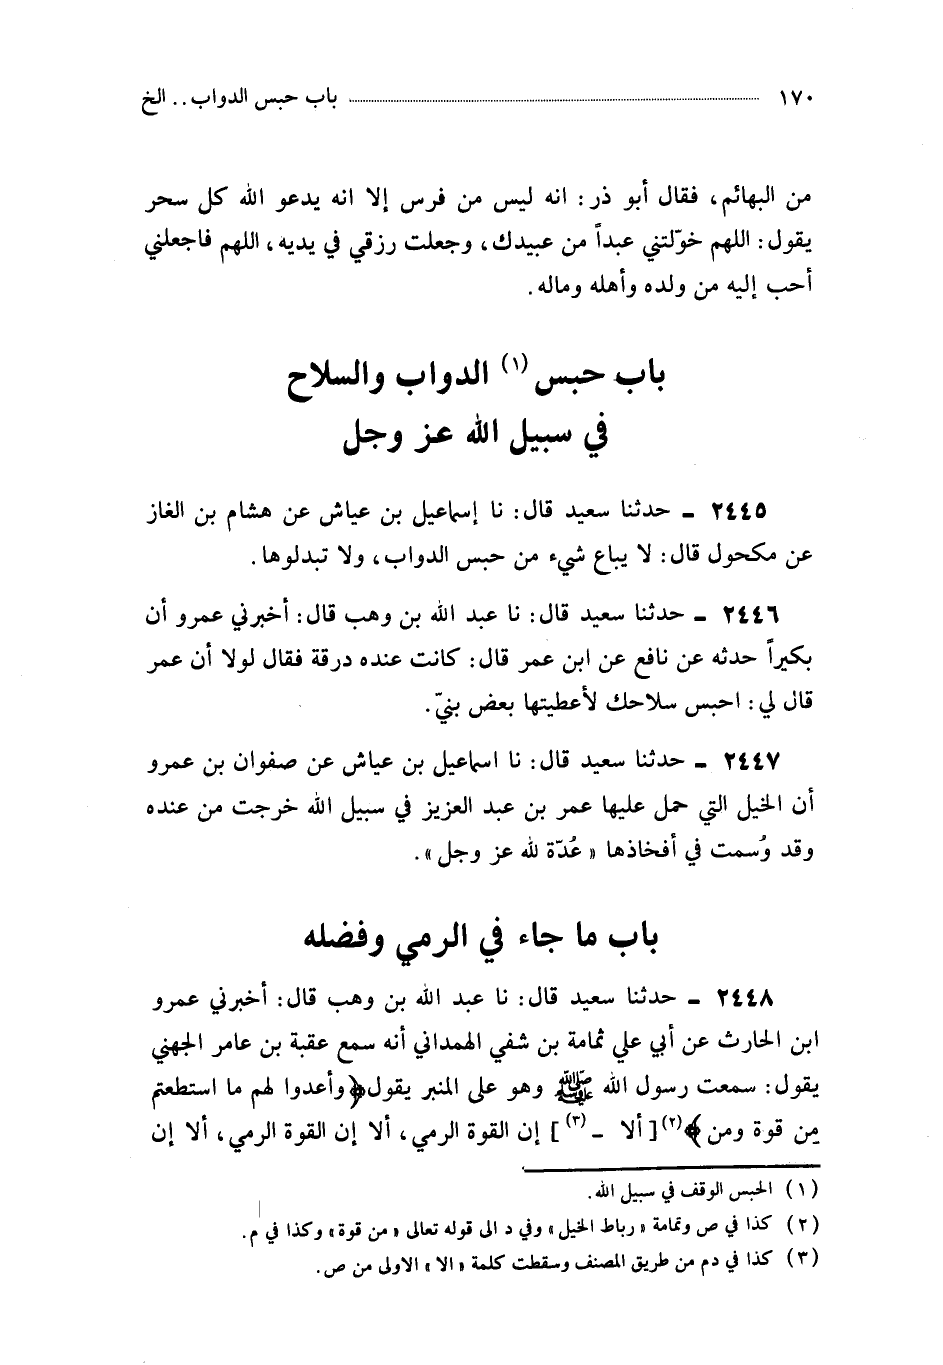 ١٧٠ باب حبس الدواب . . الخ
من البهائم، فقال أبو ذر: انه ليس من فرس إلا انه يدعو الله كل سحر
يقول: اللهم خوّلتني عبداً من عبيدك، وجعلت رزقي في يديه، اللهم فاجعلني
أحب إليه من ولده وأهله وماله.
باب حبس(١) الدواب والسلاح
في سبيل الله عز وجل
٢٤٤٥ ـ حدثنا سعيد قال: نا إسماعيل بن عياش عن هشام بن الغاز
عن مكحول قال: لا يباع شيء من حبس الدواب، ولا تبدلوها.
٢٤٤٦ ـ حدثنا سعيد قال: نا عبد الله بن وهب قال: أخبرني عمرو أن
بكيراً حدثه عن نافع عن ابن عمر قال: كانت عنده درقة فقال لولا أن عمر
قال لي: احبس سلاحك لأعطيتها بعض بنيّ.
٢٤٤٧ ـ حدثنا سعيد قال: نا اسماعيل بن عياش عن صفوان بن عمرو
أن الخيل التي حمل عليها عمر بن عبد العزيز في سبيل الله خرجت من عنده
وقد وُسمت في أفخاذها « عُدّة لله عز وجل».
باب ما جاء في الرمي وفضله
٢٤٤٨ ـ حدثنا سعيد قال: نا عبد الله بن وهب قال: أخبرني عمرو
ابن الحارث عن أبي علي ثمامة بن شفي الهمداني أنه سمع عقبة بن عامر الجهني
يقول: سمعت رسول الله ﷺ وهو على المنبر يقول﴿وأعدوا لهم ما استطعتم
من قوة ومن﴾(٢)[ألا ـ(٣)] إن القوة الرمي، ألا إن القوة الرمي، ألا إن
(١) الحبس الوقف في سبيل الله.
(٢) كذا في ص وتمامة « رباط الخيل» وفي د الى قوله تعالى «من قوة» وكذا في م.
(٣) كذا في دم من طريق المصنف وسقطت كلمة «الا» الاولى من ص.